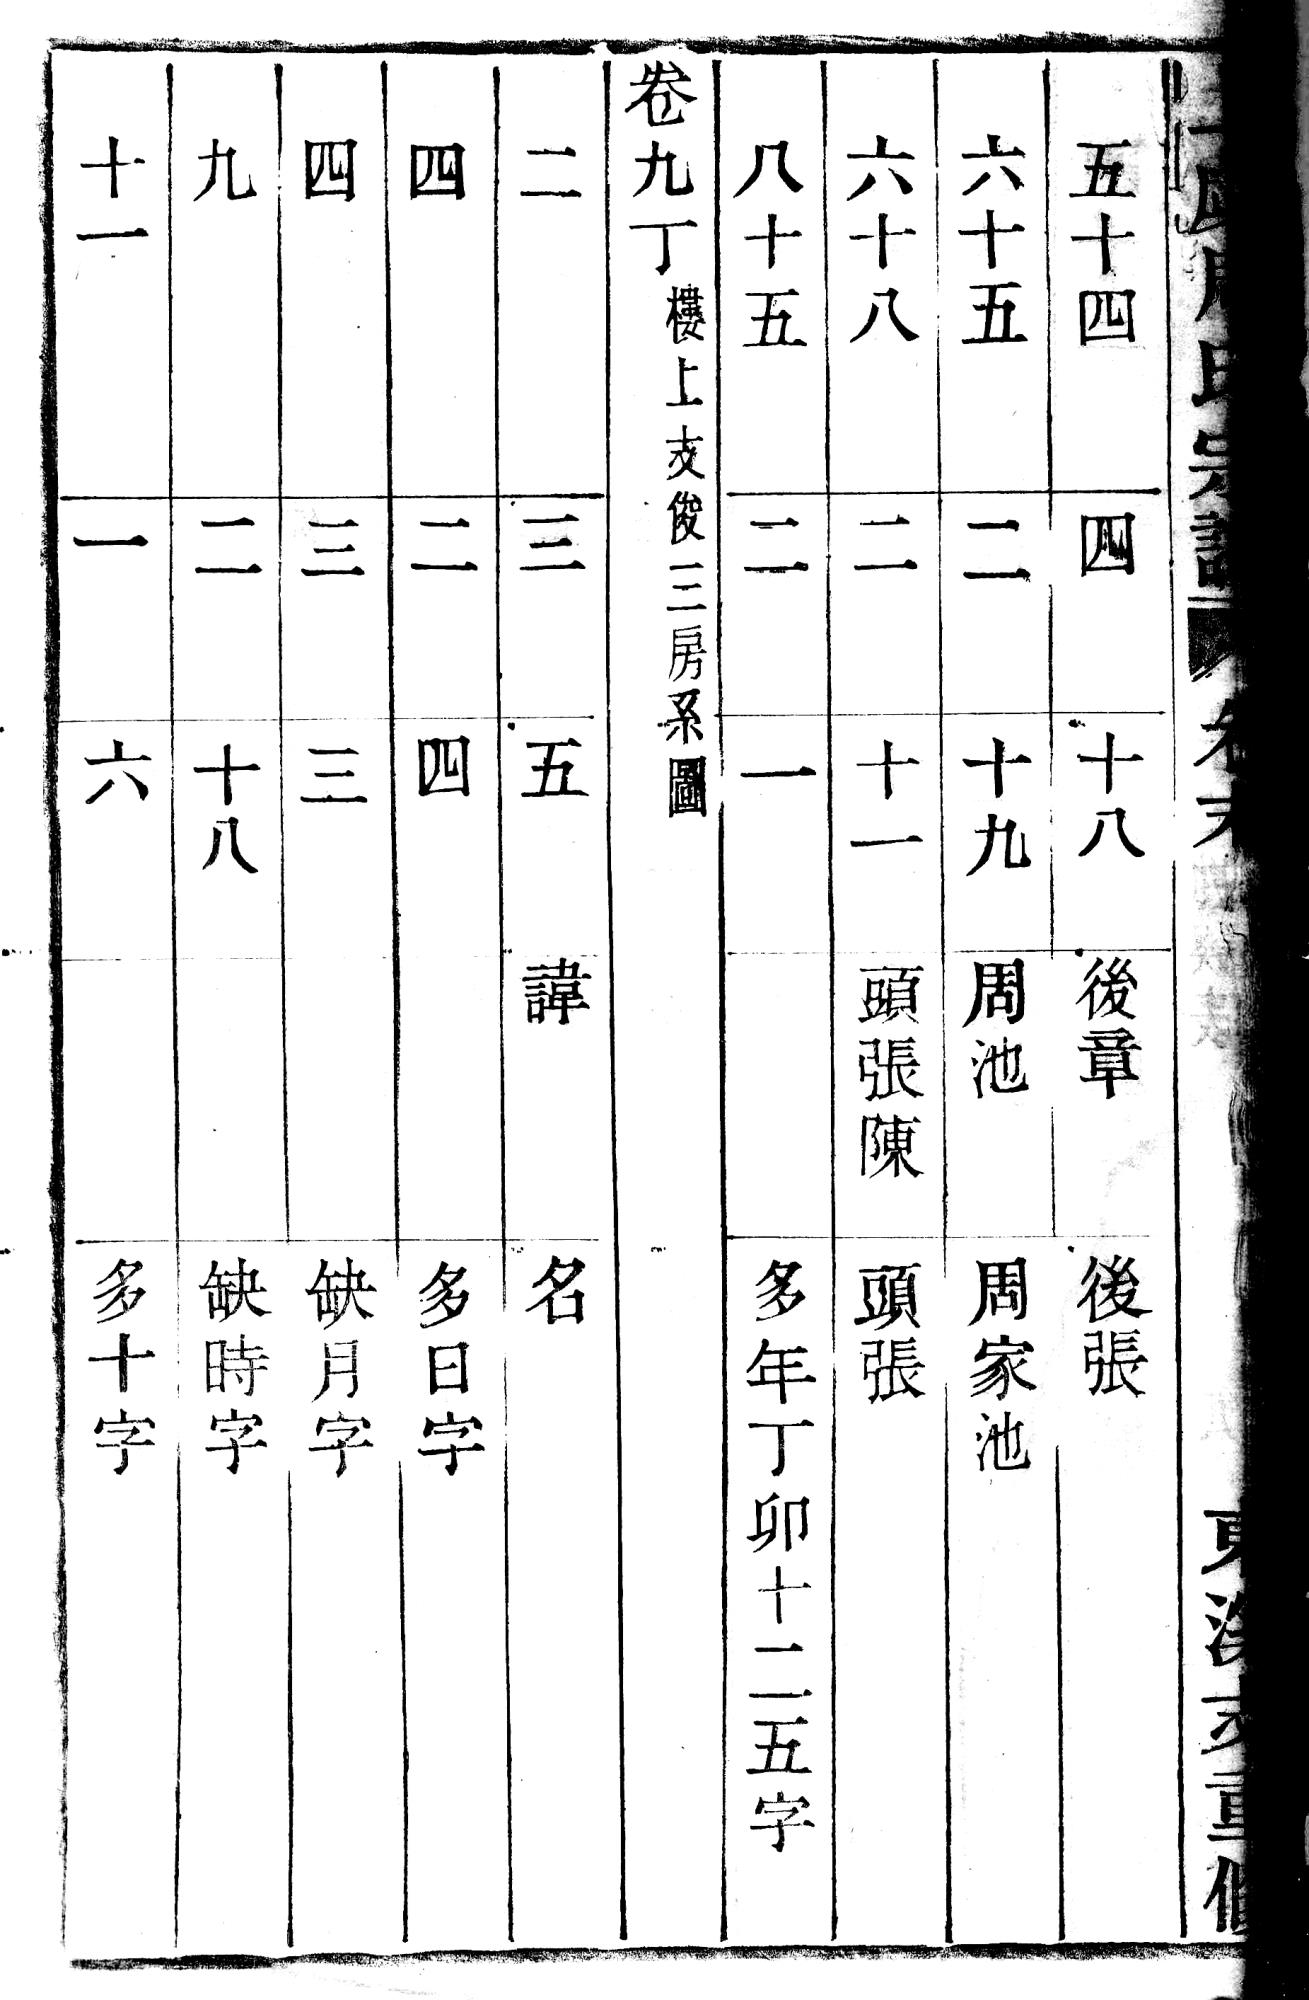 周氏宗譜 卷末 支重修
五十四 四 十八 後章 後張
六十五 二 十九 周池 周家池
六十八 二 十一 頭張陳 頭張
八十五 二 一 多年丁卯十二五字
卷九丁 樓上支俊三房系圖
二 三 五 諱 名
四 二 四 多日字
四 三 三 缺月字
九 二 十八 缺時字
十一 一 六 多十字